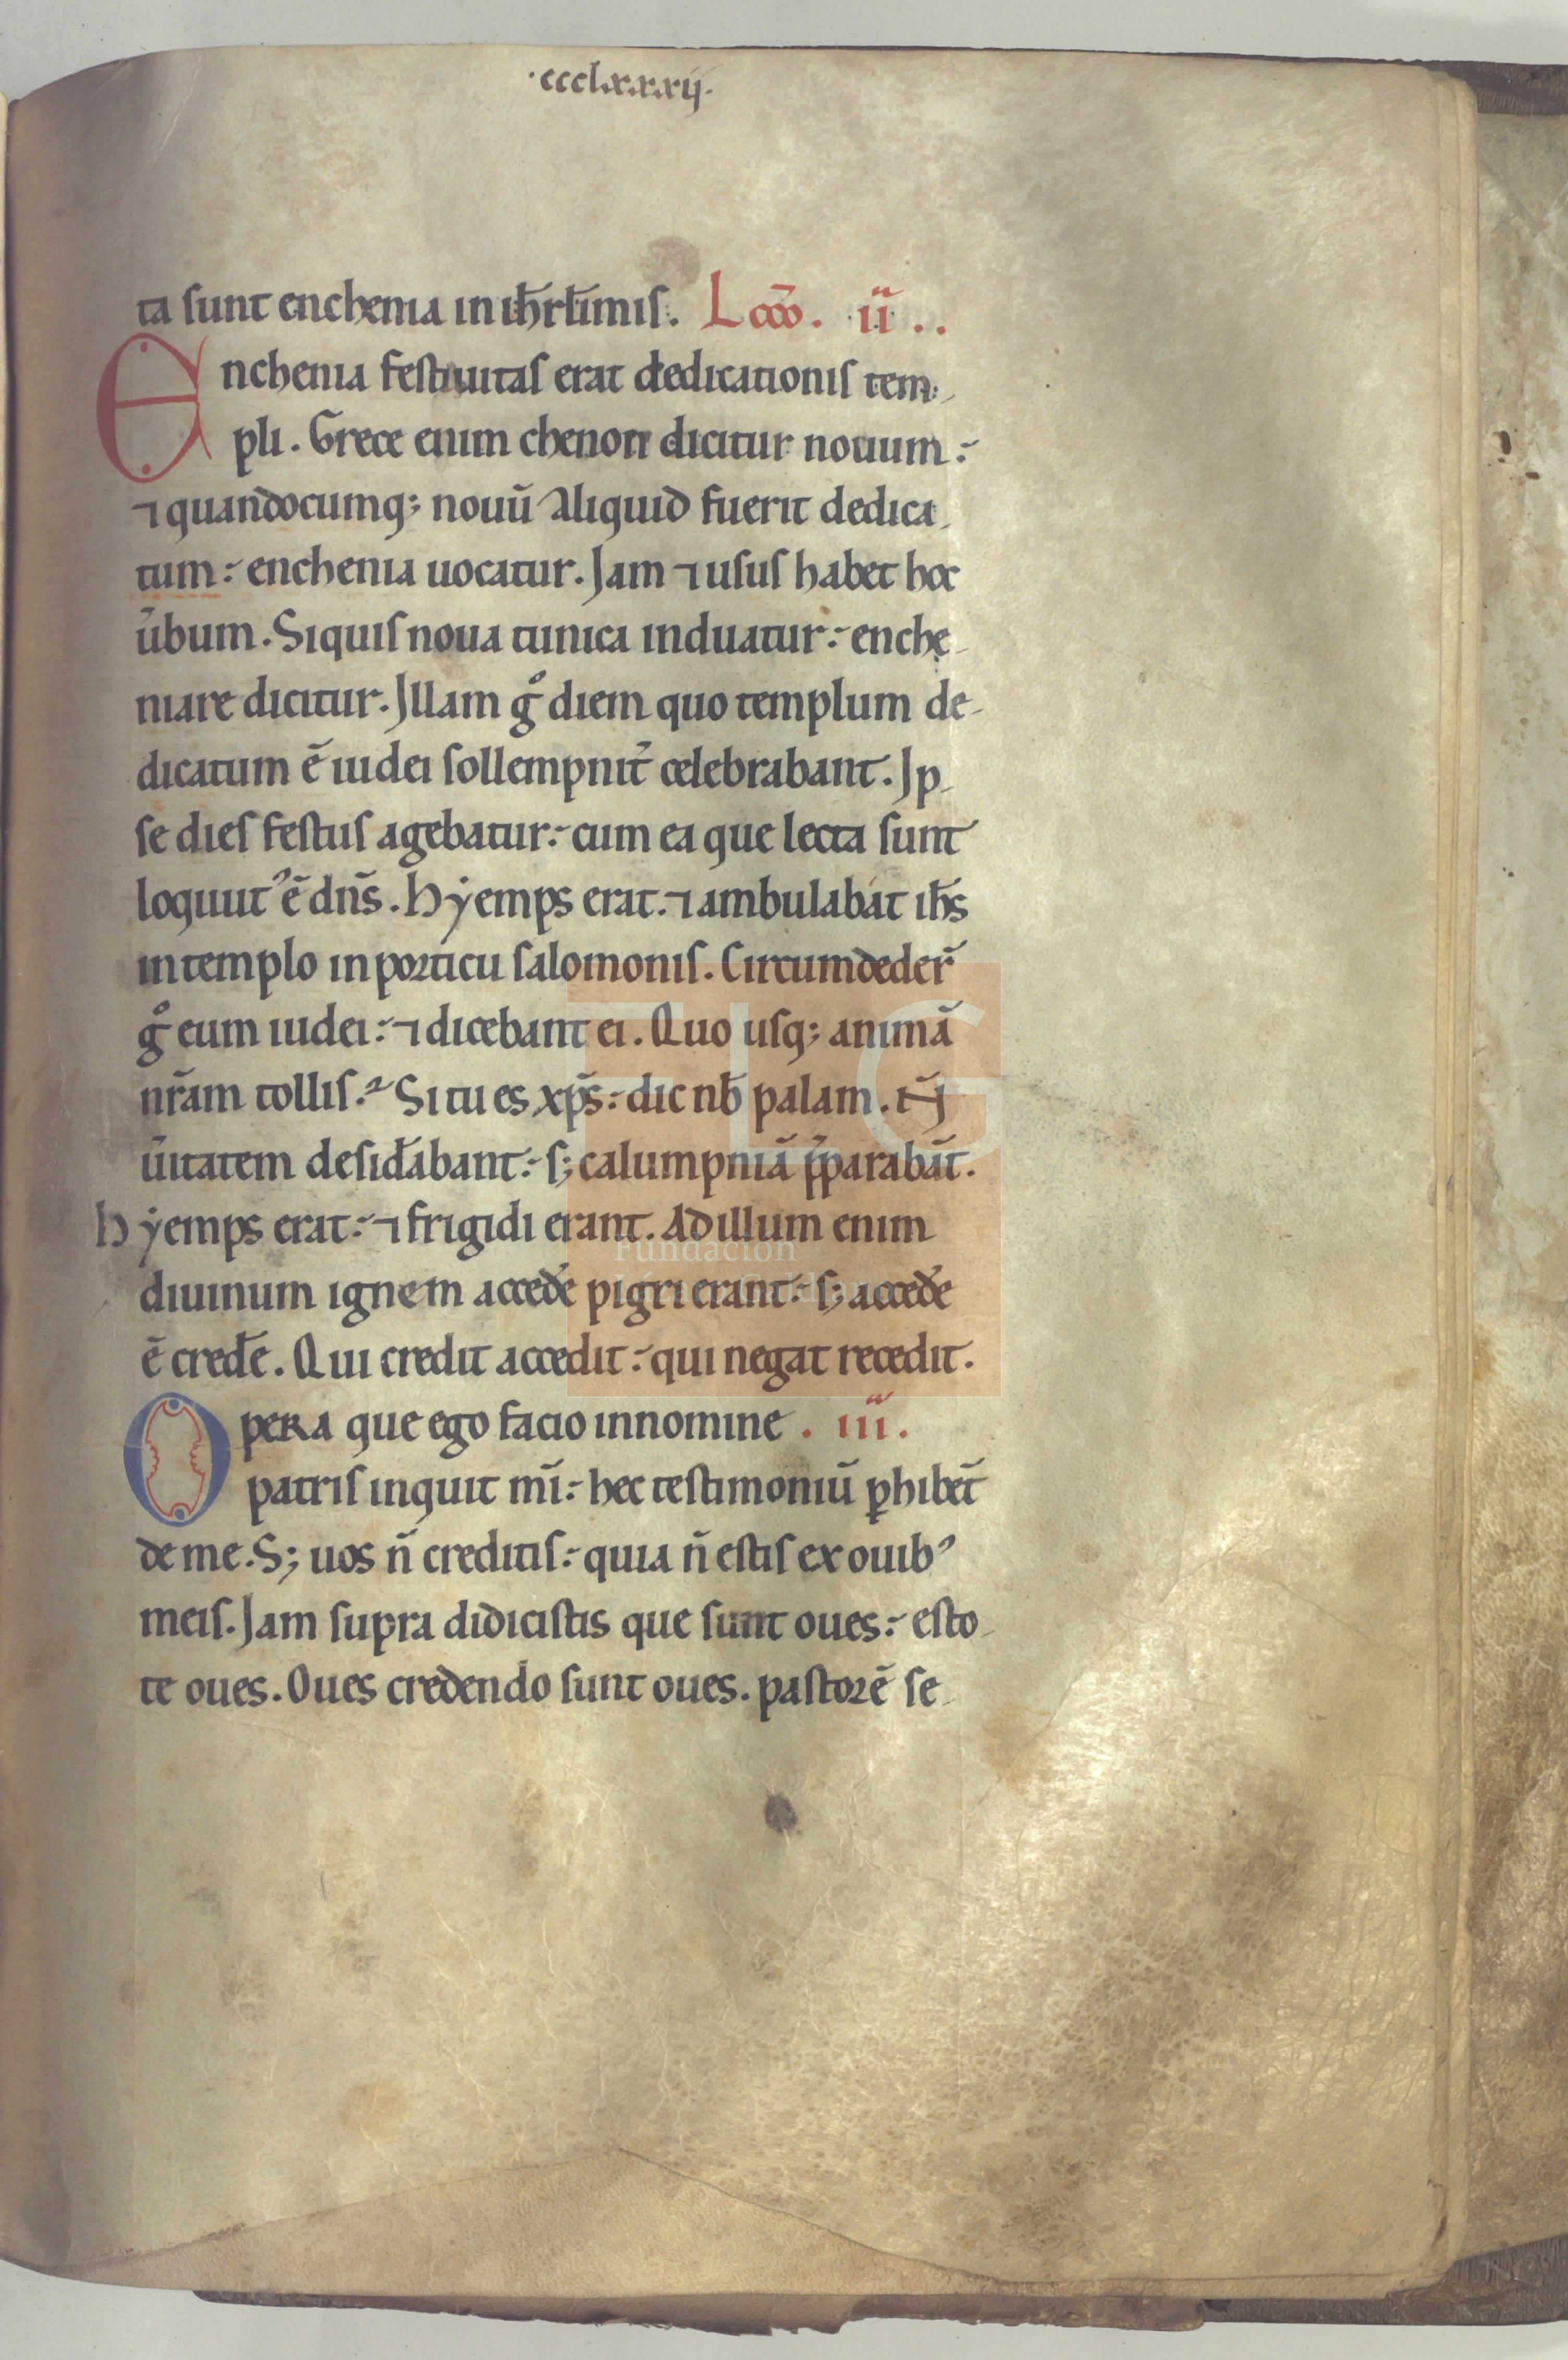 ·ccclxxxij·
ta sunt enchenia in ih̄rl̄imis. Lcc̄o. ii..
Enchenia festiuitas erat dedicationis tem-
pli. Grece enim chenon dicitur nouum:
⁊ quandocumq; nouū aliquid fuerit dedica-
tum: enchenia uocatur. Jam ⁊ usus habet hoc
ūbum. Siquis noua tunica induatur: enchę-
niare dicitur. Jllam gͦ diem quo templum de-
dicatum ē iudei sollempnit̄ celebrabant. Jp-
se dies festus agebatur: cum ea que lecta sunt
loquutꝰ ē dn̄s. Hyemps erat. ⁊ ambulabat ih̄s
in templo in porticu salomonis. Circumdeder̄
gͦ eum iudei: ⁊ dicebant ei. Quo usq; animā
nr̄am tollis? Si tu es xp̄s: dic nb̄ palam. N̄
ūitatem desid̄abant: s; calumpniā p̄parabāt.
Hyemps erat: ⁊ frigidi erant. Ad illum enim
diuinum ignem acced̄e pigri erant: s; acced̄e
ē cred̄e. Qui credit accedit: qui negat recedit.
Opera que ego facio in nomine . iii.
patris inquit mī: hec testimoniū ꝑhibēt
de me. S; uos n̄ creditis: quia n̄ estis ex ouibꝰ
meis. Jam supra didicistis que sunt oues: esto-
te oues. Oues credendo sunt oues. pastorē se-
Fundación